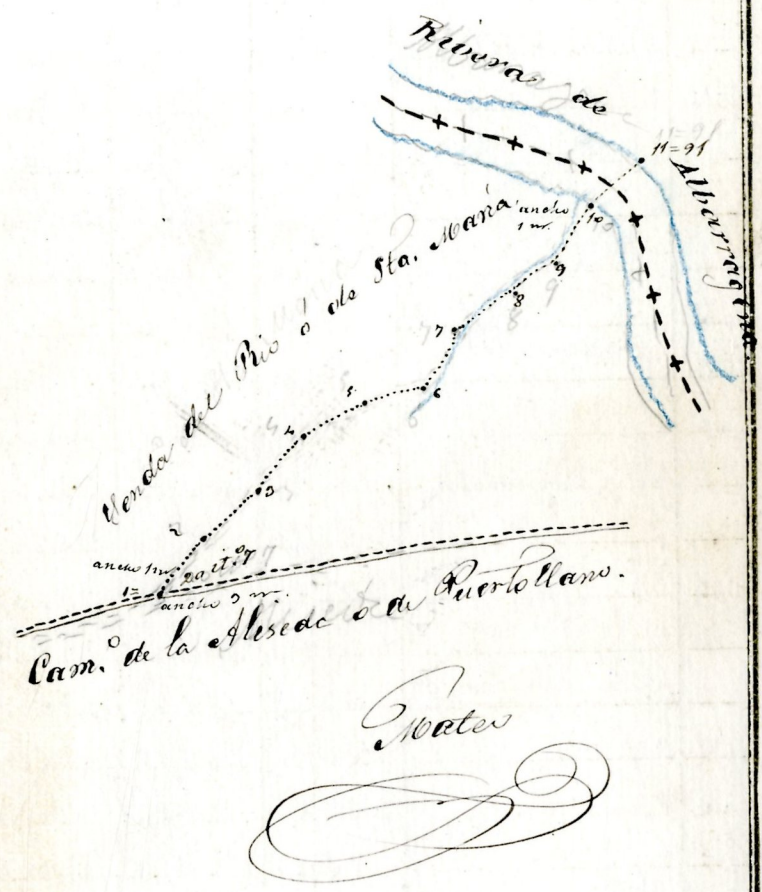 Rivera de Albarragena
11=91
ancho
1 m.
10
9
8
7
6
5
4
3
2
Senda del Rio ó de Sta. Maria
ancho 1 m.
20 it.º 7
1=
ancho 3 m.
Cam.º de la Aliseda o de Puertollano.
Mateo